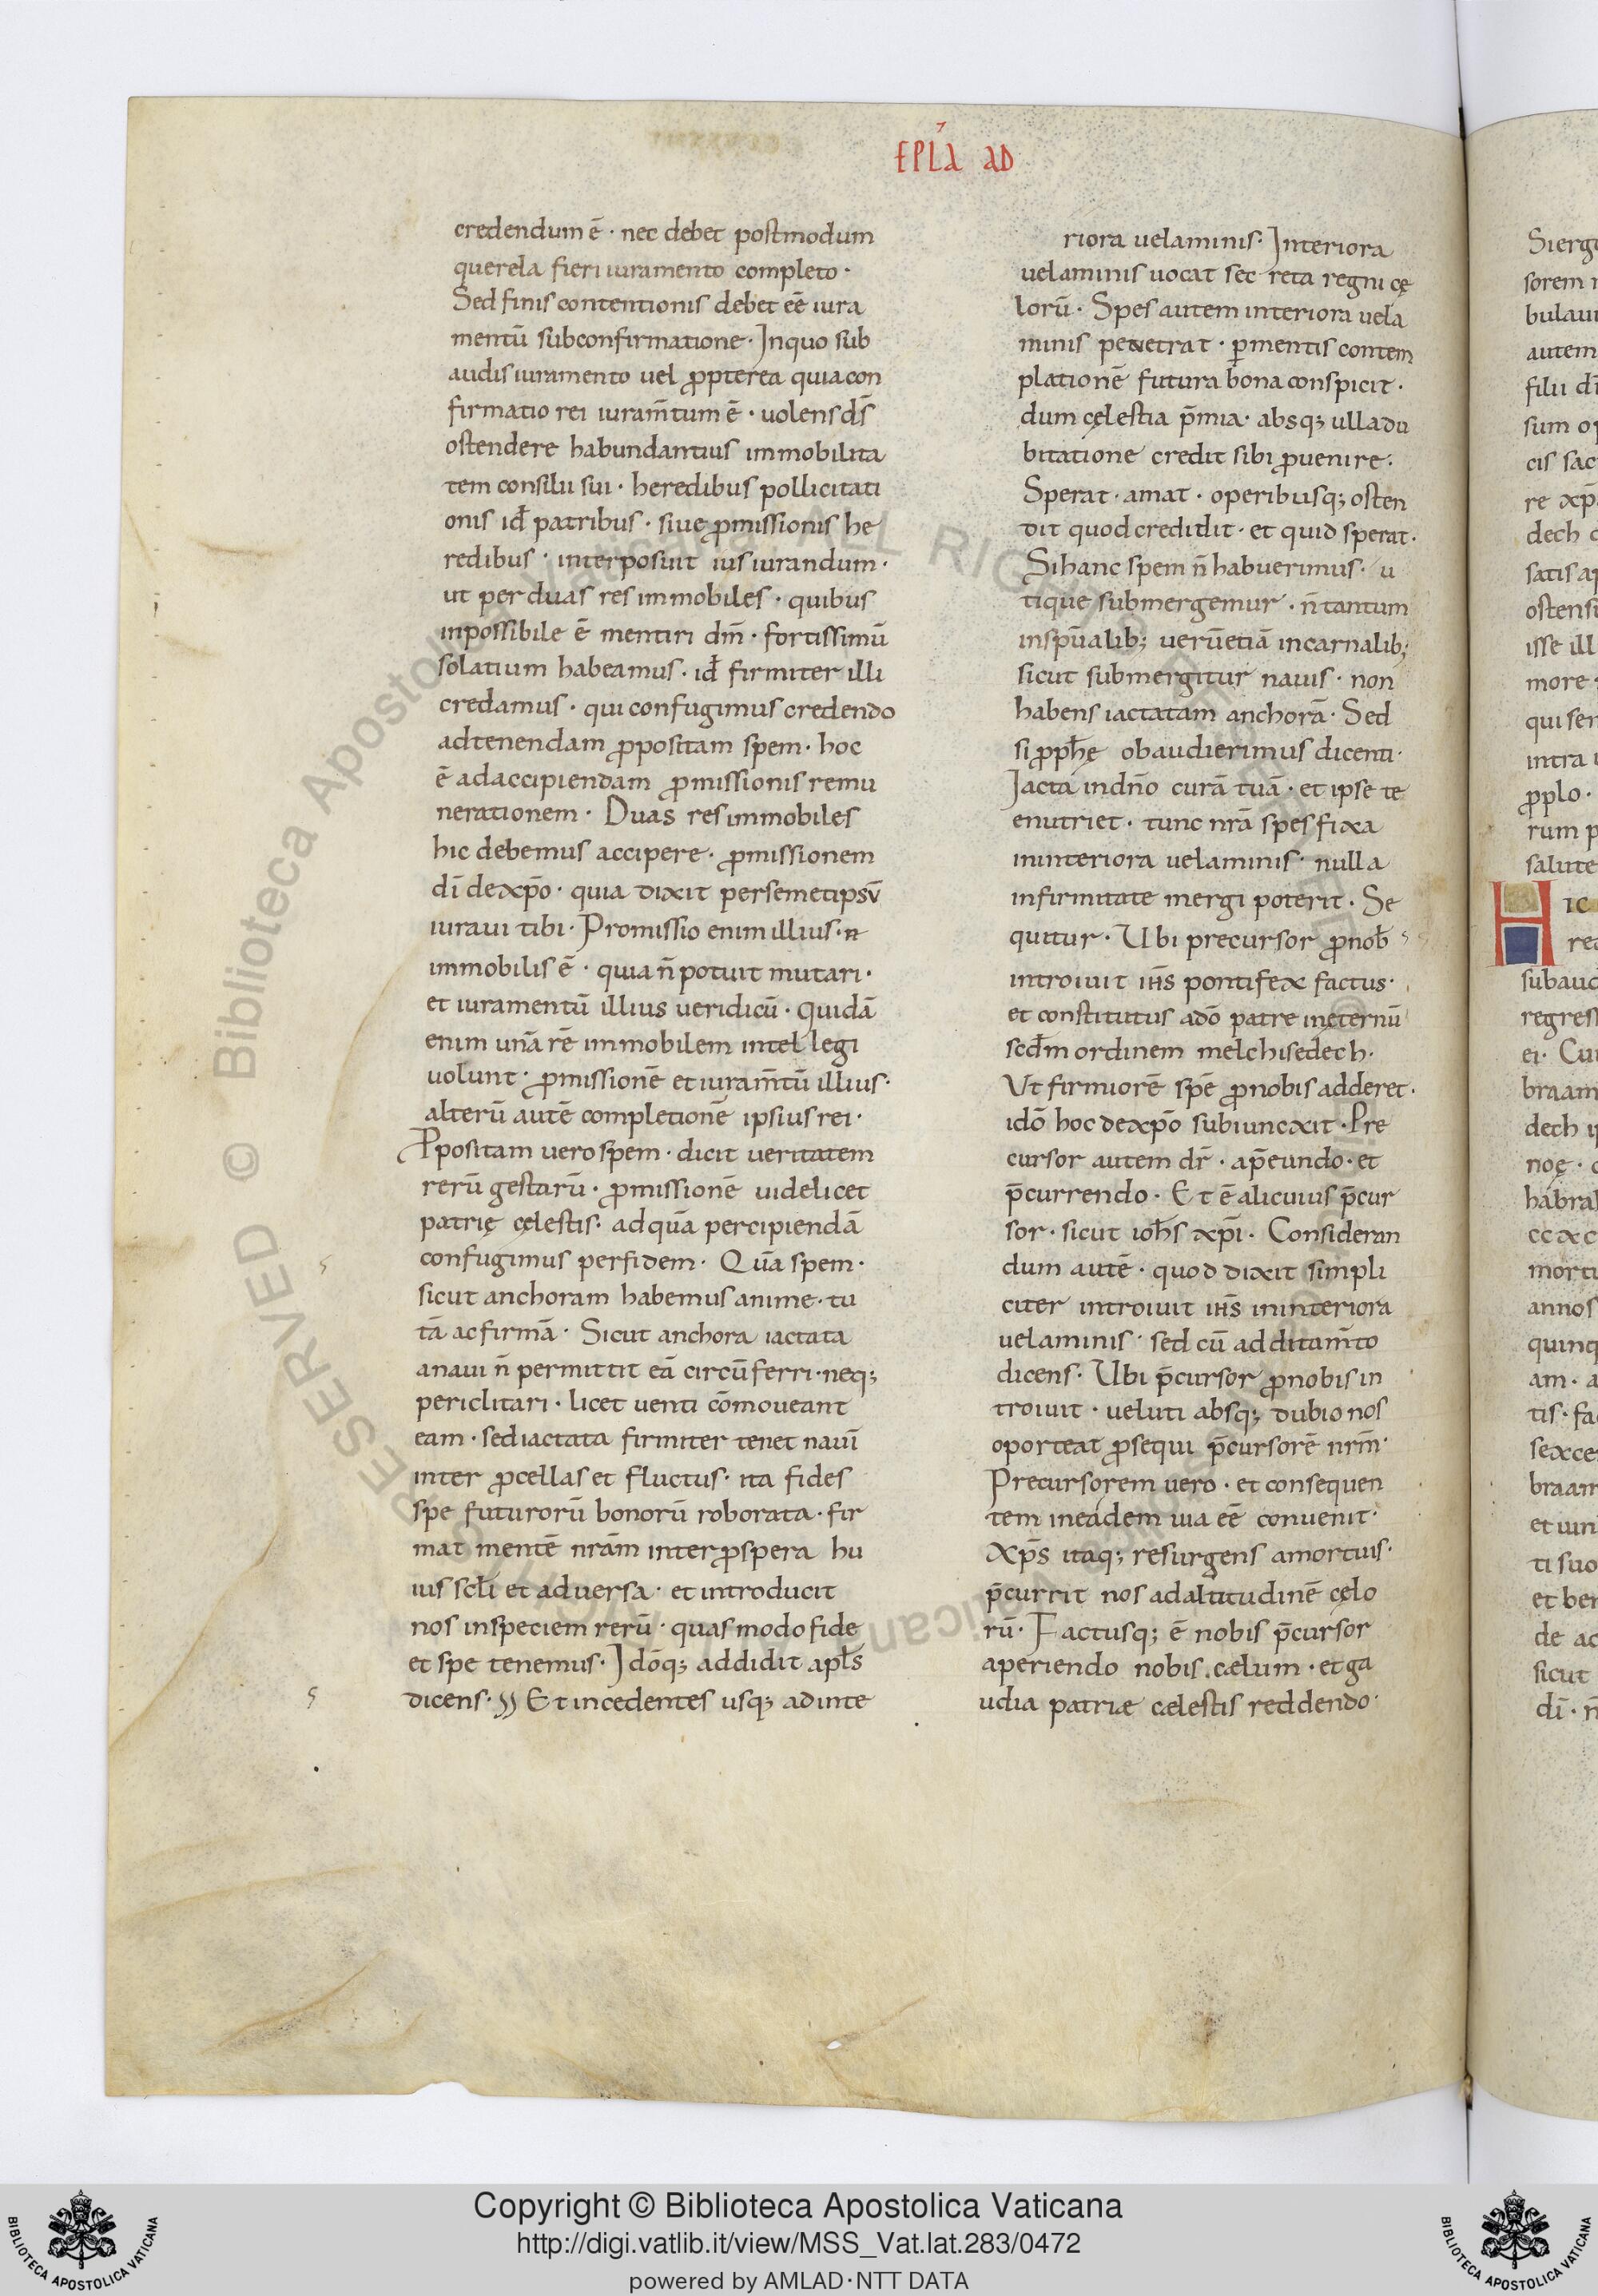 EPL̄A AD
credendum ē · nec debet postmodum
querela fieri iuramento completo ·
Sed finis contentionis debet eē iura
mentū subconfirmatione · Inquo sub
audis iuramento uel ꝓpterea quia con
firmatio rei iuram̄tum ē · uolens ds̄
ostendere habundantius immobilita
tem consilii sui · heredibus pollicitati
onis id̄ patribus · siue ꝓmissionis he
redibus · interposuit ius iurandum ·
ut per duas res immobiles · quibus
inpossibile ē mentiri dm̄ · fortissimū
solatium habeamus · id̄ firmiter illi
credamus · qui confugimus credendo
adtenendam ꝓpositam spem · hoc
ē adaccipiendam ꝓmissionis remu
nerationem · Duas res immobiles
hic debemus accipere · ꝓmissionem
dī dexp̄o · quia dixit persemetipsū
iuraui tibi · Promissio enim illius · n
immobilis ē · quia n̄ potuit mutari ·
et iuramentū illius ueridicū · Quidā
enim unā rē immobilem intellegi
uolunt · ꝓmissionē et iuram̄tū illius ·
alterū autē completionē ipsius rei ·
Ꝓpositam uero spem · dicit ueritatem
rerū gestarū · ꝓmissionē uidelicet
patrię cęlestis · ad quā percipiendā
confugimus perfidem · Quā spem ·
sicut anchoram habemus anime · tu
tā ac firmā · Sicut anchora iactata
anaui n̄ permittit eā circūferri · neq;
periclitari · licet uenti cōmoueant
eam · sed iactata firmiter tenet nauī
inter ꝓcellas et fluctus · ita fides
spe futurorū bonorū roborata · fir
mat mentē nrām inter ꝓspera hu
ius scl̄i et aduersa · et introducit
nos inspeciem rerū · quas modo fide
et spe tenemus · Idōq; addidit apl̄s
dicens · Et incedentes usq; adinte
riora uelaminis · Interiora
uelaminis uocat secreta regni cę
lorū · Spes autem interiora uela
minis penetrat · ꝑmentis contem
plationē futura bona conspicit ·
dum cęlestia p̄mia · absq; ulla du
bitatione credit sibi ꝓuenire ·
Sperat · amat · operibusq; osten
dit quod credidit · et quid sperat ·
Sihanc spem n̄ habuerimus · u
tique submergemur · n̄ tantum
inspūalib; uerūetiā incarnalib;
sicut submergitur nauis · non
habens iactatam anchorā · Sed
si ꝓph̄ę obaudierimus dicenti ·
Iacta indn̄o curā tuā · et ipse te
enutriet · tunc nrā spes fixa
ininteriora uelaminis · nulla
infirmitate mergi poterit · Se
quitur · Ubi precursor ꝓnob̄
introiuit ih̄s pontifex factus ·
et constitutus adō patre inęternū
scd̄m ordinem melchisedech ·
Ut firmiorē spē ꝓnobis adderet ·
idō hoc dexp̄o subiuncxit · Pre
cursor autem dr̄ · ap̄eundo · et
p̄currendo · Et ē alicuius p̄cur
sor · sicut ioh̄s xp̄i · Consideran
dum autē · quod dixit simpli
citer introiuit ih̄s ininteriora
uelaminis · sed cū additam̄to
dicens · Ubi p̄cursor ꝓnobis in
troiuit · ueluti absq; dubio nos
oporteat ꝓsequi p̄cursorē nrm̄ ·
Precursorem uero · et consequen
tem ineadem uia eē conuenit ·
Xp̄s itaq; resurgens amortuis ·
p̄currit nos adaltitudinē cęlo
rū · Factusq; ē nobis p̄cursor
aperiendo nobis cælum · et ga
udia patriæ cælestis reddendo ·
Copyright © Biblioteca Apostolica Vaticana
http://digi.vatlib.it/view/MSS_Vat.lat.283/0472
powered by AMLAD·NTT DATA
BIBLIOTECA APOSTOLICA VATICANA
BIBLIOTECA APOSTOLICA VATICANA